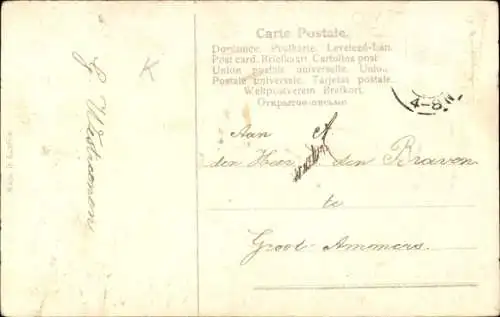 Carte Postale.
Dopisnice. Postkarte. Levelező-Lap.
Post card. Briefkaart. Cartolina post
Union postale universelle. Union
Postale universele. Tarjetas postale.
Weltpostverein Brefkort.
Открытое письмо
4-8 N
K
Aan
den Heer A den Braven
te
Groot-Ammers.